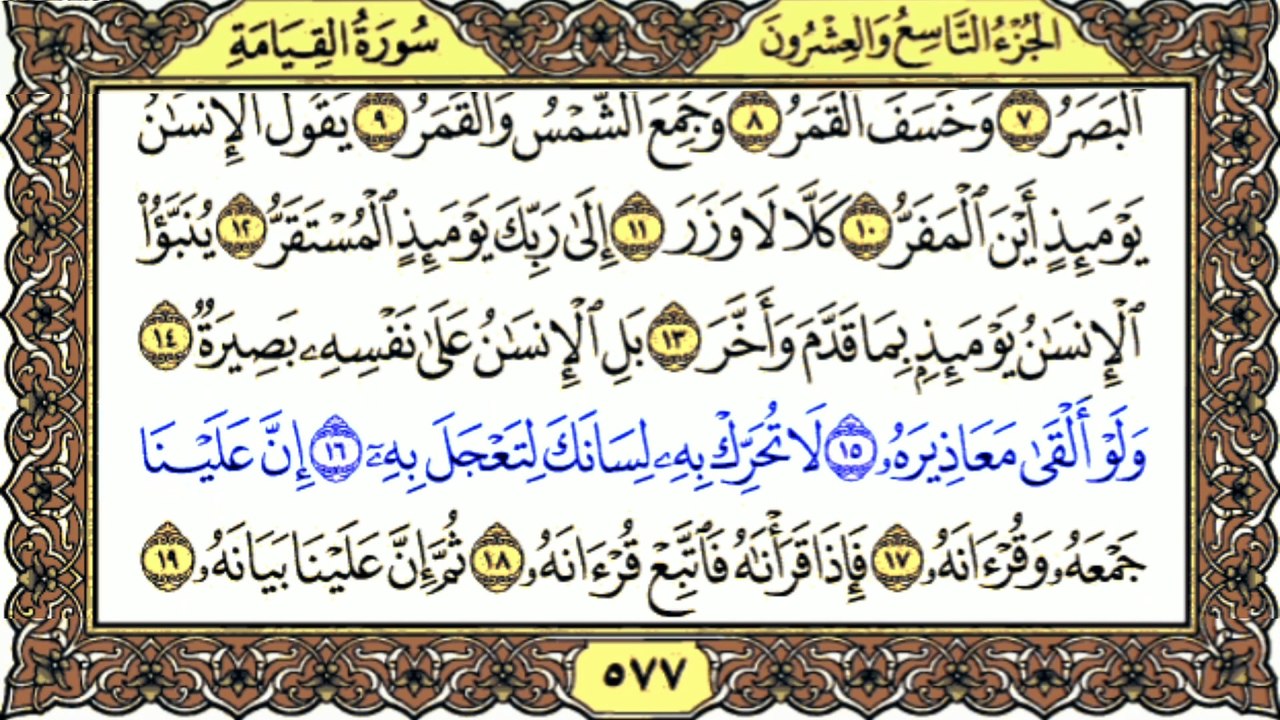 الجُزْءُ التَّاسِعُ وَالعِشْرُونَ
سُورَةُ القِيَامَةِ
ٱلْبَصَرُ ٧ وَخَسَفَ ٱلْقَمَرُ ٨ وَجُمِعَ ٱلشَّمْسُ وَٱلْقَمَرُ ٩ يَقُولُ ٱلْإِنسَٰنُ
يَوْمَئِذٍ أَيْنَ ٱلْمَفَرُّ ١٠ كَلَّا لَا وَزَرَ ١١ إِلَىٰ رَبِّكَ يَوْمَئِذٍ ٱلْمُسْتَقَرُّ ١٢ يُنَبَّؤُا۟
ٱلْإِنسَٰنُ يَوْمَئِذٍۭ بِمَا قَدَّمَ وَأَخَّرَ ١٣ بَلِ ٱلْإِنسَٰنُ عَلَىٰ نَفْسِهِۦ بَصِيرَةٌ ١٤
وَلَوْ أَلْقَىٰ مَعَاذِيرَهُۥ ١٥ لَا تُحَرِّكْ بِهِۦ لِسَانَكَ لِتَعْجَلَ بِهِۦٓ ١٦ إِنَّ عَلَيْنَا
جَمْعَهُۥ وَقُرْءَانَهُۥ ١٧ فَإِذَا قَرَأْنَٰهُ فَٱتَّبِعْ قُرْءَانَهُۥ ١٨ ثُمَّ إِنَّ عَلَيْنَا بَيَانَهُۥ ١٩
٥٧٧